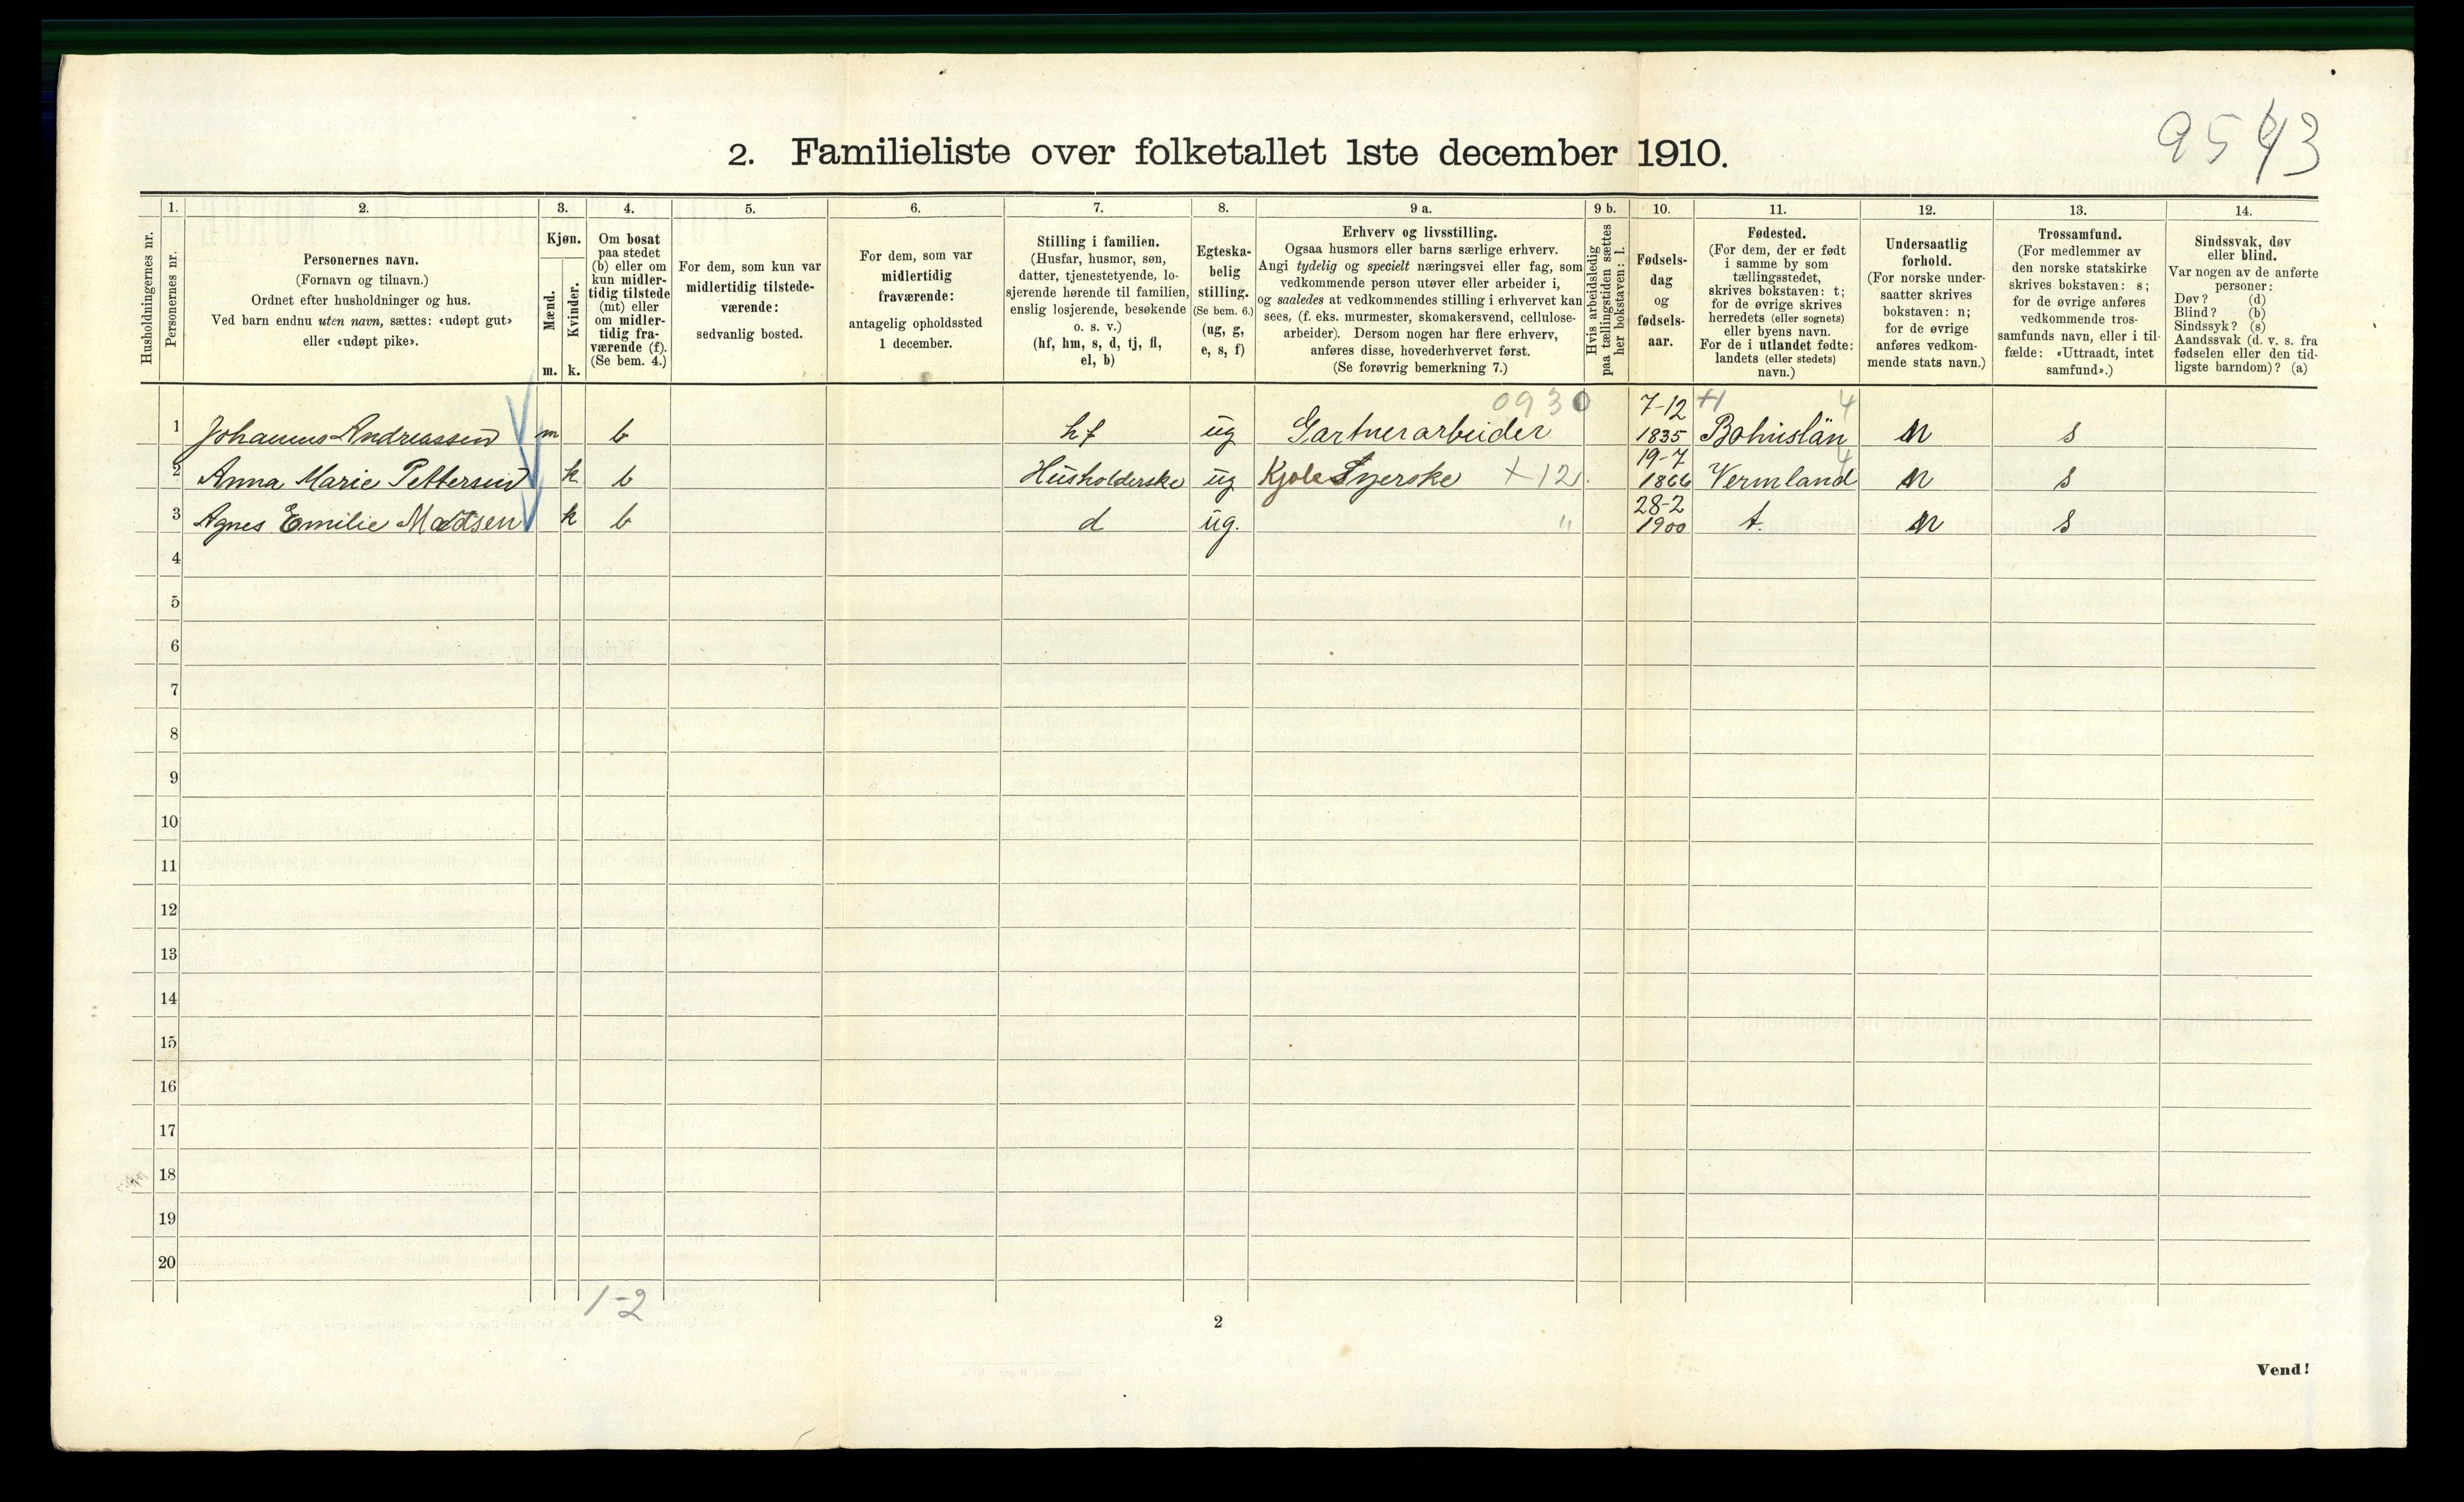 9543
2. Familieliste over folketallet 1ste december 1910.
Husholdningernes nr.
1.
Personernes nr.
2.
Personernes navn.
(Fornavn og tilnavn.)
Ordnet efter husholdninger og hus.
Ved barn endnu uten navn, sættes: «udøpt gut»
eller «udøpt pike».
3.
Kjøn.
Mænd.
Kvinder.
m. k.
4.
Om bosat
paa stedet
(b) eller om
kun midler-
tidig tilstede
(mt) eller
om midler-
tidig fra-
værende (f).
(Se bem. 4.)
5.
For dem, som kun var
midlertidig tilstede-
værende:
sedvanlig bosted.
6.
For dem, som var
midlertidig
fraværende:
antagelig opholdssted
1 december.
7.
Stilling i familien.
(Husfar, husmor, søn,
datter, tjenestetyende, lo-
sjerende hørende til familien,
enslig losjerende, besøkende
o. s. v.)
(hf, hm, s, d, tj, fl,
el, b)
8.
Egteska-
belig
stilling.
(Se bem. 6.)
(ug, g,
e, s, f)
9 a.
Erhverv og livsstilling.
Ogsaa husmors eller barns særlige erhverv.
Angi tydelig og specielt næringsvei eller fag, som
vedkommende person utøver eller arbeider i,
og saaledes at vedkommendes stilling i erhvervet kan
sees, (f. eks. murmester, skomakersvend, cellulose-
arbeider). Dersom nogen har flere erhverv,
anføres disse, hovederhvervet først.
(Se forøvrig bemerkning 7.)
9 b.
Hvis arbeidsledig
paa tællingstiden sættes
her bokstaven: l.
10.
Fødsels-
dag
og
fødsels-
aar.
11.
Fødested.
(For dem, der er født
i samme by som
tællingsstedet,
skrives bokstaven: t;
for de øvrige skrives
herredets (eller sognets)
eller byens navn.
For de i utlandet fødte:
landets (eller stedets)
navn.)
12.
Undersaatlig
forhold.
(For norske under-
saatter skrives
bokstaven: n;
for de øvrige
anføres vedkom-
mende stats navn.)
13.
Trossamfund.
(For medlemmer av
den norske statskirke
skrives bokstaven: s;
for de øvrige anføres
vedkommende tros-
samfunds navn, eller i til-
fælde: «Uttraadt, intet
samfund».)
14.
Sindssvak, døv
eller blind.
Var nogen av de anførte
personer:
Døv? (d)
Blind? (b)
Sindssyk? (s)
Aandssvak (d. v. s. fra
fødselen eller den tid-
ligste barndom)? (a)
0930 7-12 4
1 Johannes Andreassen m b hf ug Gartnerarbeider 1835 Bohuslän N s
19-7 4
2 Anna Marie Pettersen k b Husholderske ug Kjole Syerske +12. 1866 Vermland N s
28-2
3 Agnes Emilie Madsen k b d ug. " 1900 t. N s
4
5
6
7
8
9
10
11
12
13
14
15
16
17
18
19
20
1-2
2
Vend!